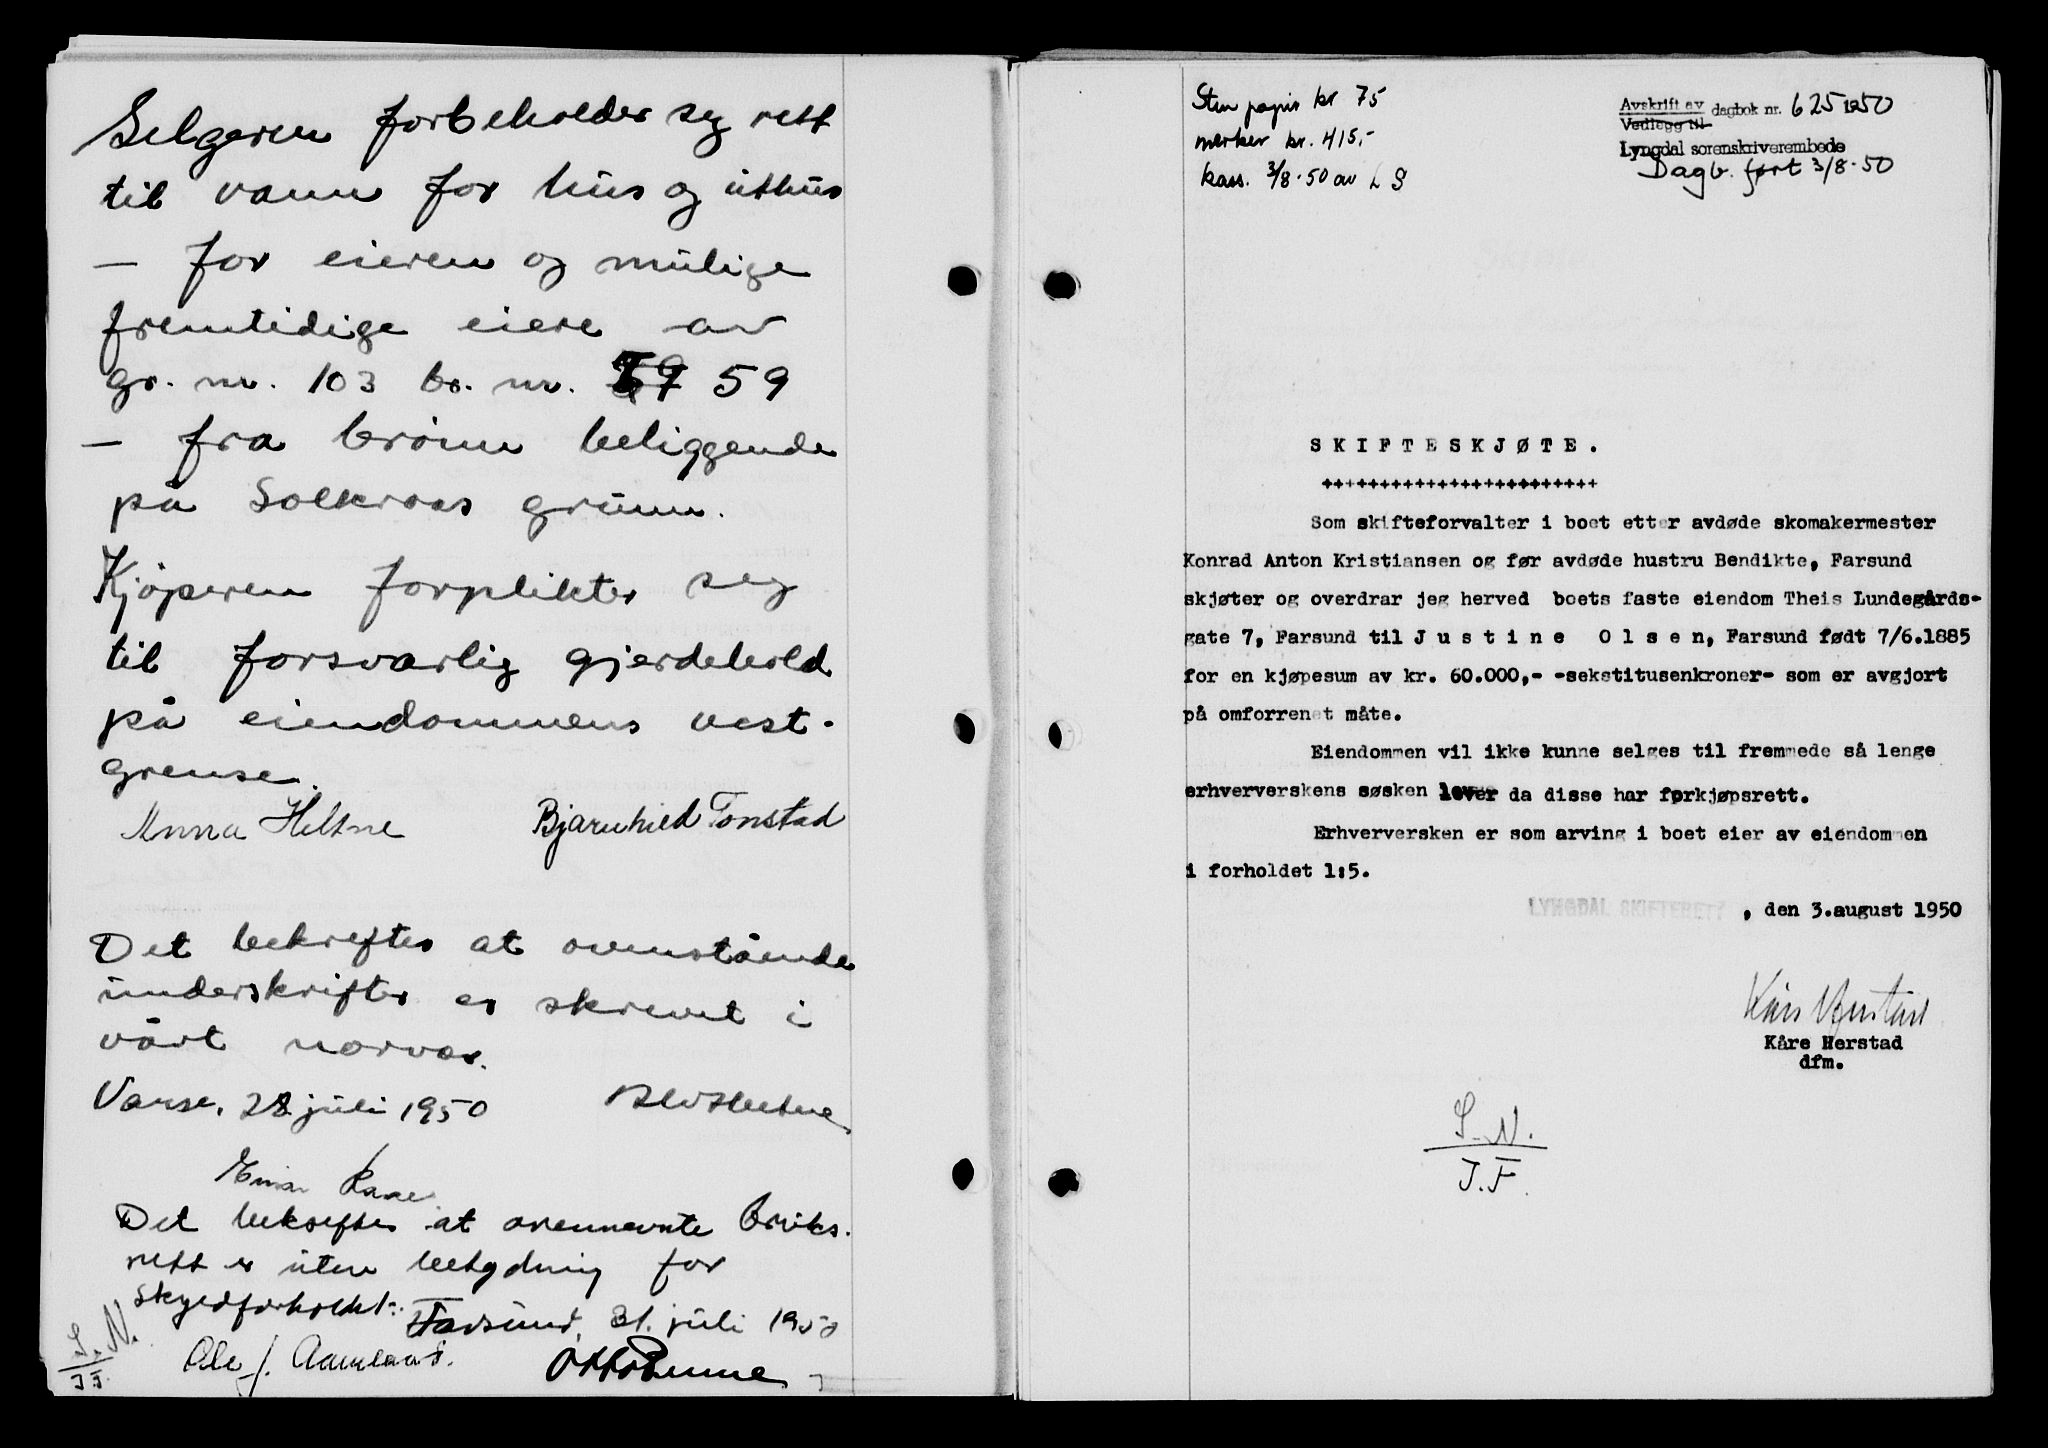 Selgeren forbeholder seg rett
til vann for hus og uthus
— for eieren og mulige
fremtidige eiere av
gr. nr. 103 br. nr. 59
— fra brönn beliggende
på Solkroas grunn.
Kjöperen forplikter seg
til forsvarlig gjerdehold
på eiendommens vest-
grense.
Anna Heltne Bjarnhild Tonstad
Det bekreftes at ovenstående
underskrifter er skrevet i
vårt nærvær.
Vanse, 28 juli 1950
Einar
Det bekreftes at ovennevnte bruks-
rett er uten betydning for
skyldforholdet.
Farsund, 31. juli 1950
Ole J. Aamlaas. Otto Lunne
S.N.
J.F.
Stem papir kr 75
merker kr. 415,-
kass. 3/8-50 av L S
Avskrift av
Vedlegg til
dagbok nr. 625 1950
Lyngdal sorenskriverembede
Dagb. ført 3/8-50
SKIFTESKJØTE.
++++++++++++++++++++++++
Som skifteforvalter i boet etter avdøde skomakermester
Konrad Anton Kristiansen og før avdøde hustru Bendikte, Farsund
skjøter og overdrar jeg herved boets faste eiendom Theis Lundegårds-
gate 7, Farsund til Justine Olsen, Farsund født 7/6.1885
for en kjøpesum av kr. 60.000,- -sekstitusenkroner- som er avgjort
på omforrenet måte.
Eiendommen vil ikke kunne selges til fremmede så lenge
erhververskens søsken lever da disse har forkjøpsrett.
Erhververs­ken er som arving i boet eier av eiendommen
i forholdet 1:5.
LYNGDAL SKIFTERETT , den 3.august 1950
Kåre Herstad
Kåre Herstad
dfm.
S.N.
J.F.